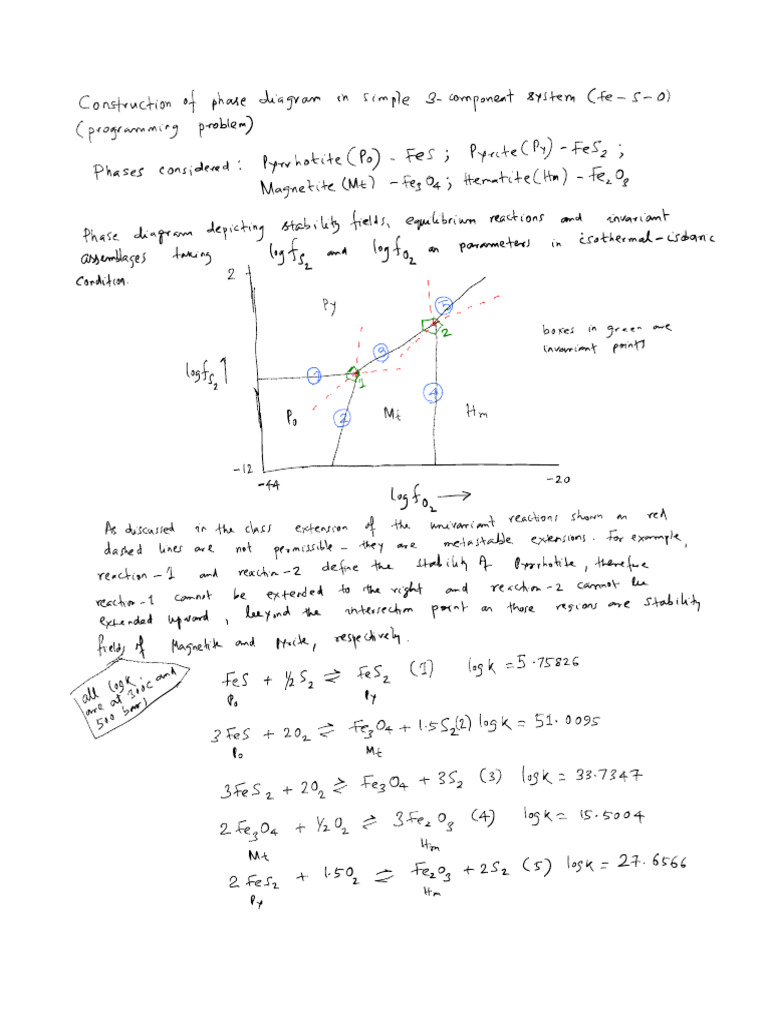 Construction of phase diagram in simple 3-component system (Fe-S-O)
(programming problem)
Phases considered: Pyrrhotite (Po) - FeS; Pyrite (Py) - FeS2;
Magnetite (Mt) - Fe3O4; Hematite (Hm) - Fe2O3
Phase diagram depicting stability fields, equilibrium reactions and invariant
assemblages taking logfS2 and logfO2 as parameters in isothermal-isobaric
condition.
2
Py
5
2
boxes in green are
invariant points
logfS2↑
3
1
1
Po
2
Mt
4
Hm
-12
-44
-20
logfO2 →
As discussed in the class extension of the univariant reactions shown as red
dashed lines are not permissible - they are metastable extensions. For example,
reaction-1 and reaction-2 define the stability of Pyrrhotite, therefore
reaction-1 cannot be extended to the right and reaction-2 cannot be
extended upward, beyond the intersection point as those regions are stability
fields of Magnetite and Pyrite, respectively.
all logk
are at 300C and
500 bars
FeS + 1/2 S2 ⇌ FeS2 (1) logk = 5.75826
Po Py
3FeS + 2O2 ⇌ Fe3O4 + 1.5S2 (2) logk = 51.0095
Po Mt
3FeS2 + 2O2 ⇌ Fe3O4 + 3S2 (3) logk = 33.7347
2Fe3O4 + 1/2O2 ⇌ 3Fe2O3 (4) logk = 15.5004
Mt Hm
2FeS2 + 1.5O2 ⇌ Fe2O3 + 2S2 (5) logk = 27.6566
Py Hm